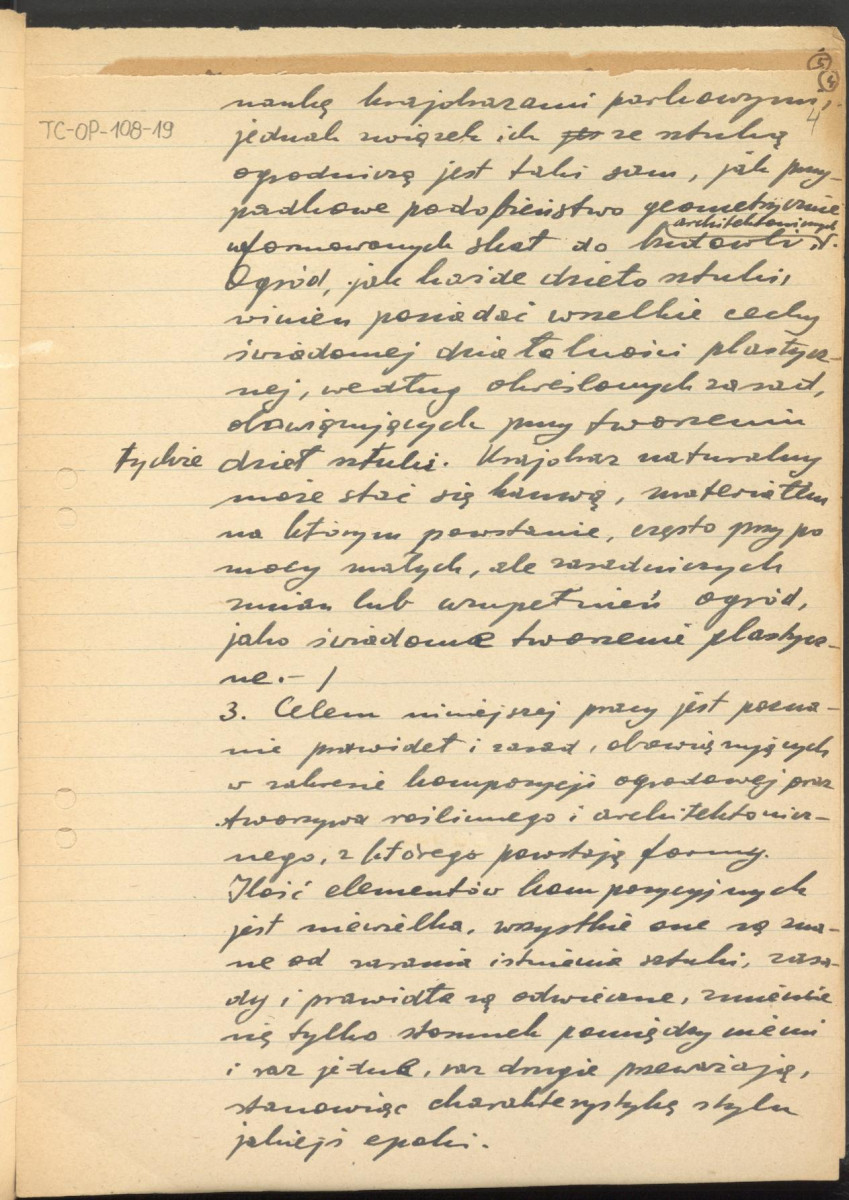 5
4
4
TC-OP-108-19
naukę krajobrazami parkowymi,
jednak związek ich ze sztuką
ogrodniczą jest taki sam, jak przy-
padkowe podobieństwo geometrycznie
architektonicznych
uformowanych skał do budowli.
Ogród, jak każde dzieło sztuki,
winien posiadać wszelkie cechy
świadomej działalności plastycz-
nej, według określonych zasad,
obowiązujących przy tworzeniu
tychże dzieł sztuki. Krajobraz naturalny
może stać się kanwą, materiałem
na którym powstanie, często przy po
mocy małych, ale zasadniczych
zmian lub uzupełnień ogród,
jako świadome tworzenie plastycz-
ne.- /
3. Celem niniejszej pracy jest pozna-
nie prawideł i zasad, obowiązujących
w zakresie kompozycji ogrodowej oraz
tworzywa roślinnego i architektonicz-
nego, z którego powstają formy.
Ilość elementów kompozycyjnych
jest niewielka, wszystkie one są zna-
ne od zarania istnienia sztuki, zasa-
dy i prawidła są odwieczne, zmienia
się tylko stosunek pomiędzy niemi
i raz jedne, raz drugie przeważają,
stanowiąc charakterystykę stylu
jakiejś epoki.